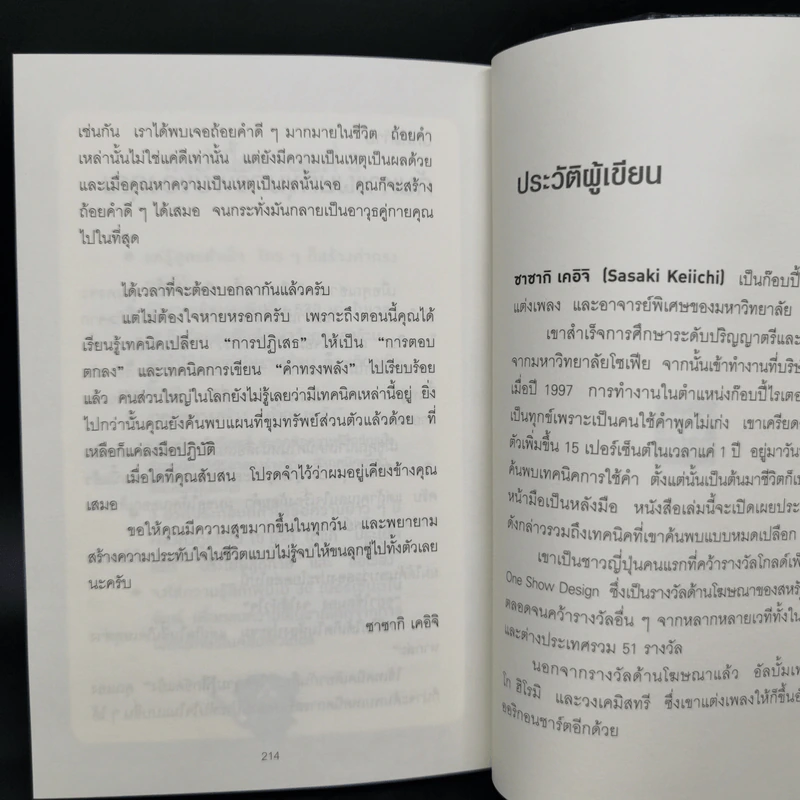 เช่นกัน เราได้พบเจอถ้อยคำดี ๆ มากมายในชีวิต ถ้อยคำ
เหล่านั้นไม่ใช่แค่ดีเท่านั้น แต่ยังมีความเป็นเหตุเป็นผลด้วย
และเมื่อคุณหาความเป็นเหตุเป็นผลนั้นเจอ คุณก็จะสร้าง
ถ้อยคำดี ๆ ได้เสมอ จนกระทั่งมันกลายเป็นอาวุธคู่กายคุณ
ไปในที่สุด
ได้เวลาที่จะต้องบอกลากันแล้วครับ
แต่ไม่ต้องใจหายหรอกครับ เพราะถึงตอนนี้คุณได้
เรียนรู้เทคนิคเปลี่ยน “การปฏิเสธ” ให้เป็น “การตอบ
ตกลง” และเทคนิคการเขียน “คำทรงพลัง” ไปเรียบร้อย
แล้ว คนส่วนใหญ่ในโลกยังไม่รู้เลยว่ามีเทคนิคเหล่านี้อยู่ ยิ่ง
ไปกว่านั้นคุณยังค้นพบแผนที่ขุมทรัพย์ส่วนตัวแล้วด้วย ที่
เหลือก็แค่ลงมือปฏิบัติ
เมื่อใดที่คุณสับสน โปรดจำไว้ว่าผมอยู่เคียงข้างคุณ
เสมอ
ขอให้คุณมีความสุขมากขึ้นในทุกวัน และพยายาม
สร้างความประทับใจในชีวิตแบบไม่รู้จบให้ขนลุกซู่ไปทั้งตัวเลย
นะครับ
ซาซากิ เคอิจิ
214
ประวัติผู้เขียน
ซาซากิ เคอิจิ (Sasaki Keiichi) เป็นก๊อบปี้
แต่งเพลง และอาจารย์พิเศษของมหาวิทยาลัย
เขาสำเร็จการศึกษาระดับปริญญาตรีและ
จากมหาวิทยาลัยโซเฟีย จากนั้นเข้าทำงานที่บริษ
เมื่อปี 1997 การทำงานในตำแหน่งก๊อบปี้ไรเตอ
เป็นทุกข์เพราะเป็นคนใช้คำพูดไม่เก่ง เขาเครียด
ตัวเพิ่มขึ้น 15 เปอร์เซ็นต์ในเวลาแค่ 1 ปี อยู่มาวัน
ค้นพบเทคนิคการใช้คำ ตั้งแต่นั้นเป็นต้นมาชีวิตก็เ
หน้ามือเป็นหลังมือ หนังสือเล่มนี้จะเปิดเผยประ
ดังกล่าวรวมถึงเทคนิคที่เขาค้นพบแบบหมดเปลือก
เขาเป็นชาวญี่ปุ่นคนแรกที่คว้ารางวัลโกลด์เพ็
One Show Design ซึ่งเป็นรางวัลด้านโฆษณาของสหรั
ตลอดจนคว้ารางวัลอื่น ๆ จากหลากหลายเวทีทั้งใน
และต่างประเทศรวม 51 รางวัล
นอกจากรางวัลด้านโฆษณาแล้ว อัลบั้มเพ
โก ฮิโรมิ และวงเคมิสทรี ซึ่งเขาแต่งเพลงให้ก็ขึ้นอั
ออริกอนชาร์ตอีกด้วย